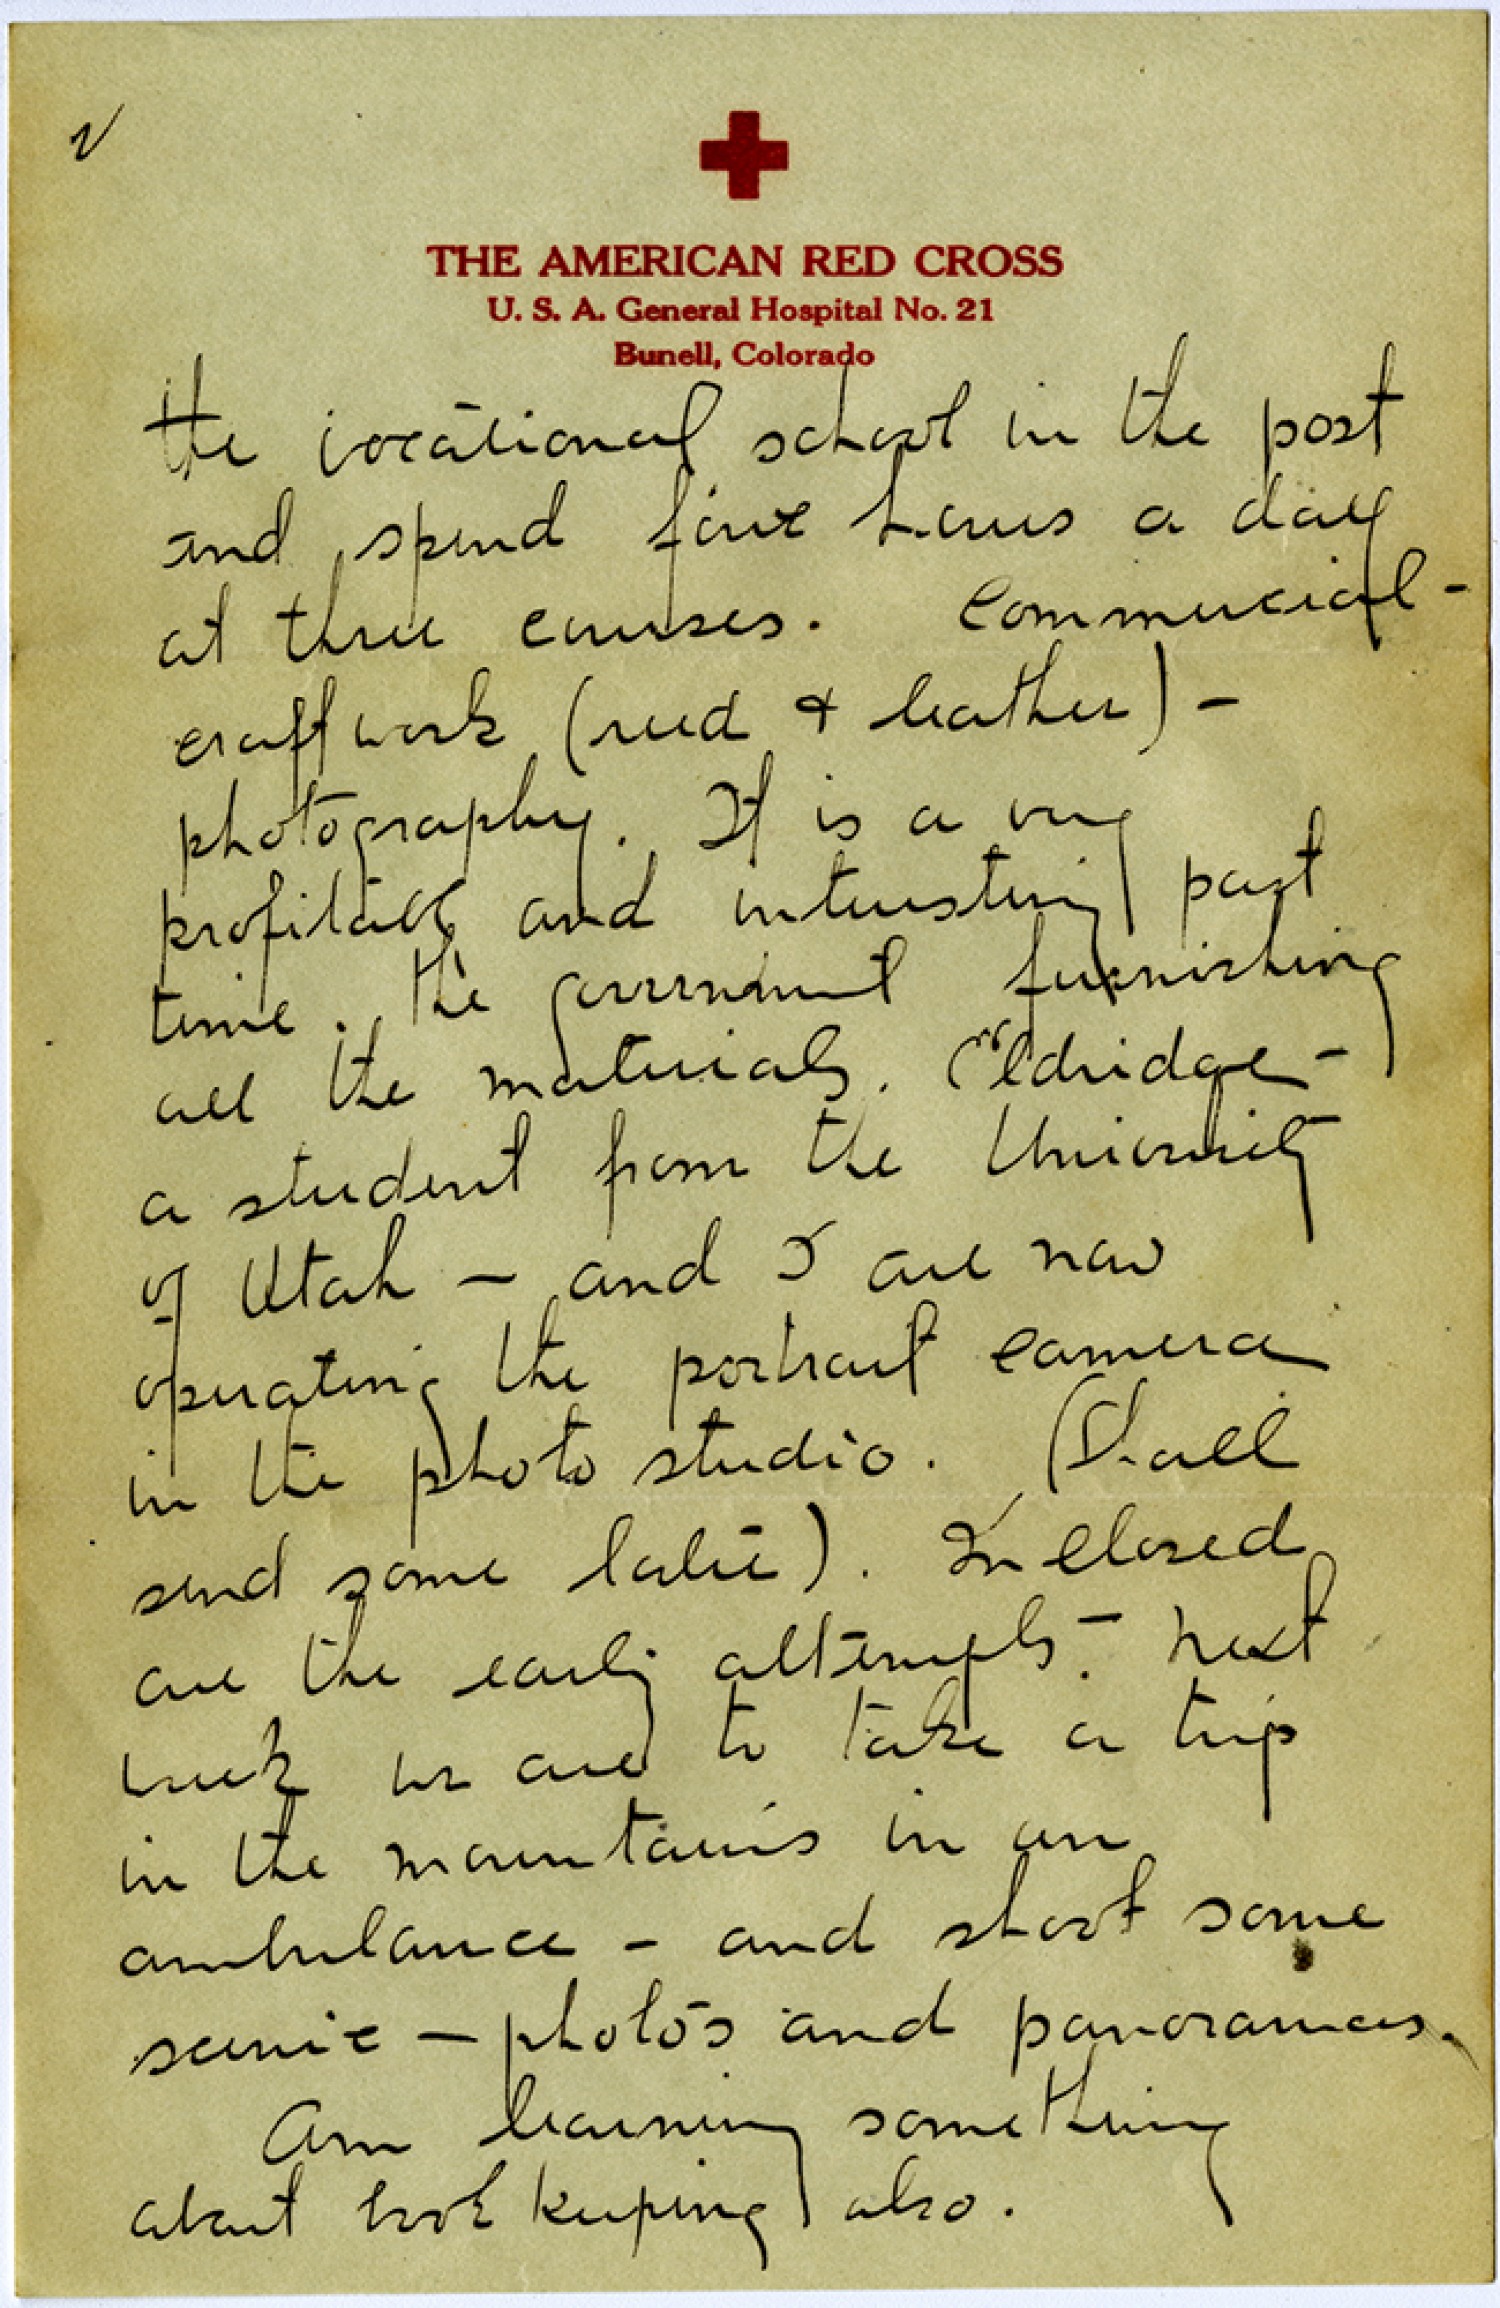 2
THE AMERICAN RED CROSS
U. S. A. General Hospital No. 21
Bunell, Colorado
the vocational school in the post
and spend four hours a day
at three courses. Commercial -
craft work (reed & leather) -
photography. It is a very
profitable and interesting past
time. the government furnishing
all the materials. Eldridge -
a student from the University
of Utah - and I are now
operating the portrait camera
in the photo studio. (Shall
send some later). Inclosed
are the early attempts. - Next
week we are to take a trip
in the mountains in an
ambulance - and shoot some
scenic - photos and panoramas.
Am learning something
about book keeping also.